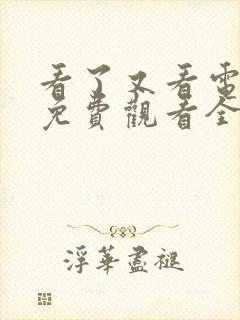 看了又看電
免費觀看全
浮華盡褪